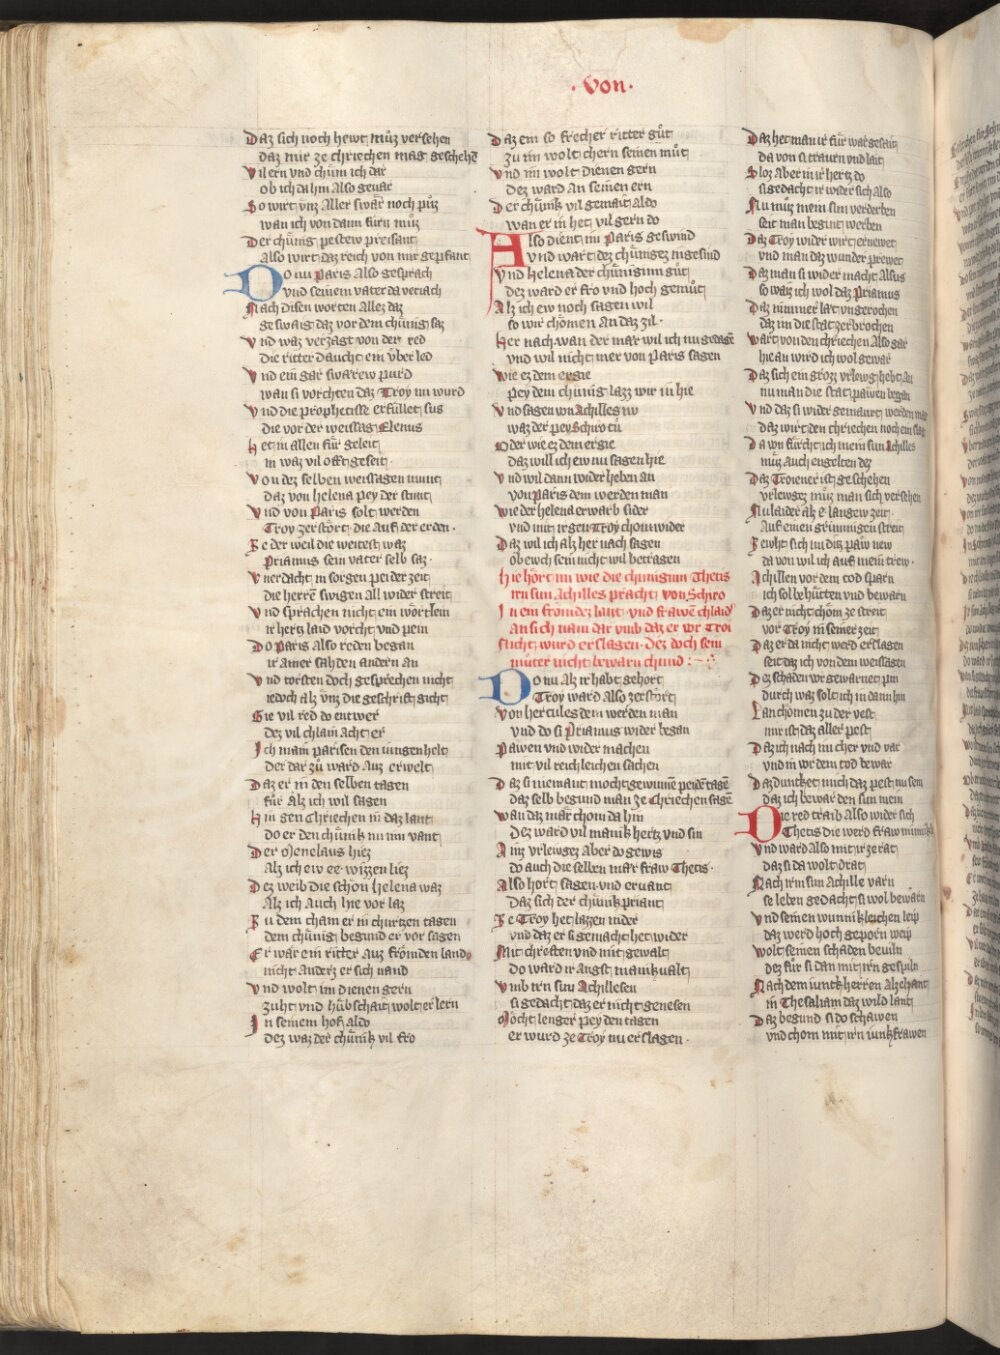 · Von ·
Daz sich noch hewt můz versehen
daz mir ze chriechen mag geschehen
Vil ern vnd chům ich dar
ob ich da hin Also gevar
So wirt vnz Aller swär noch půz
wan ich von dann fürn můz
Der chünig pestew preisant
Also wirt daz reich von mir gepfant
Do nu Paris Also gesprach
vnd seinem vater da veriach
Nach disen worten Allez daz
geswaig daz vor dem chünig saz
Vnd waz verzagt von der red
die ritter daucht ein vber led
Vnd ein gar swarew purd
wan si vorchten daz Troy nu wurd
Vnd die prophetisse erfüllet sus
die vor der weissag Elenus
Het in allen für geleit
in waz vil offt geseit ·
Von dez selben weissagen munt
daz von helena pey der stunt
Vnd von Paris solt werden
Troy zerstört die Auf der erden ·
Ze der weil die weitest waz
Priamus sein vater selb saz ·
Vnerdacht in sorgen pei der zeit
die herrē swigen all wider streit
Vnd sprachen nicht ein wörtlein
ir hertz laid vorcht vnd pein
Do Paris Also reden began
ir ainer sah den andern an
Vnd torsten doch gesprechen nicht
iedoch alz vnz die geschrift gicht
Gie vil red do entwer
dez vil chlain acht er
Ich main parisen den iungen helt
der dar zů ward Auz erwelt
Daz er in den selben tagen
für Alz ich wil sagen
Hin gen Chriechen in daz lant
do er den chünk nu inn vant
Der Menelaus hiez
Alz ich ew ee wizzen liez
Dez weib die schon helena waz
Alz ich Auch hie vor laz
Zu dem cham er in churtzen tagen
dem chünig begund er vor sagen
Er wär ein ritter Auz frömden landē
nicht Anderz er sich nand
Vnd wolt im dienen gern
zuht vnd hübschait wolt er lern
In seinem hof aldo
dez waz der chünik vil fro
Daz ein so frecher ritter gůt
zu im wolt chern seinen můt
Vnd im wolt dienen gern
dez ward An seinen ern
Der chünik vil gemait aldo
wan er in het vil gern do
Also dient im Paris geswind
vnd wart dez chüngez ingesind
Vnd helena der chüniginn gůt
dez ward er fro vnd hoch gemůt
Alz ich ew noch sagen wil
so wir chömen An daz zil ·
Her nach wan der mär wil ich nu gedagē
vnd wil nicht mer von Paris sagen
Wie ez dem ergie
pey dem chünig lazz wir in hie
Vnd sagen von Achilles nv
waz der pey Schiro tů
Oder wie ez dem ergie
daz will ich ew nu sagen hie
Vnd wil dann wider heben an
von Paris dem werden man
Wie der helena erwarb sider
vnd mit ir gen Troy chom wider
Daz wil ich alz her nach sagen
ob ewch sein nicht wil betragen
Hie hört nu wie die chünigin Thetis
irn sun Achilles pracht von Schiro
In ein frömdez lant vnd frawen chlaid
an sich nam dar vmb daz er vor Troi
nicht wurd erslagen · Dez doch sein
můter nicht bewarn chund :~
Do nu Alz ir habt gehört
Troy ward Also zerstört
Von hercules dem werden man
vnd do si Priamus wider began
Pawen vnd wider machen
mit vil reichleichen sachen
Daz si niemant mocht gewinnē pei den tagē
daz selb begund man ze Chriechen sagē
Wan daz mär chom da hin
Dez ward vil manik hertz vnd sin
Ainz vrlewgez Aber do gewis
do auch die selben mär fraw Thetis ·
Also hort sagen vnd ervant
Daz sich der chünk priant
Ze Troy het lazen nider
vnd daz er si gemacht het wider
Mit chreften vnd mit gewalt
do ward ir Angst manikvalt
Vmb irn sun Achillesen
si gedacht daz er nicht genesen
Möcht lenger pey den tagen
er wurd ze Troy nu erslagen ·
Daz het man ir für war gesait
da von si trauren vnd lait
Sloz Aber in ir hertz do
si gedacht ir wider sich Also
Nu můz mein sun verderben
seit man beginnet werben
Daz Troy wider wirt ernewet
vnd man daz wunder prewet
Daz man si wider macht Alsus
so waiz ich wol daz Priamus
Daz nimmer lat vngerochen
daz im die stat zerbrochen
Wart von den chriechen Also gar
hie an wird ich wol gewar
Daz sich ein grozz vrlewg hebt An
nu man die stat pawen began
Vnd daz si wider gemaurt werden mag
daz wirt den chriechen noch ein slag
Da von fürcht ich mein sun Achilles
můz Auch engelten dez
Daz Troiener ist geschehen
vrlewgez můz man sich versehen
Nu laider alz e langew zeit ·
Auf einen grimmigen streit
Zewht sich nu ditz paw new
da von wil ich auf mein trew ·
Achillen vor dem tod sparn
ich sol behütten vnd bewarn
Daz er nicht chöm ze streit
vor Troy in seiner zeit
Daz er da nicht werd erslagen
seit daz ich von dem weissagen
Dez schaden wor gewarnet pin
durch waz solt ich in dann hin
Lan chömen zu der vest
mir ist daz aller pest
Daz ich nach im cher vnd var
vnd in vor dem tod bewar
Daz duncket mich daz pest nu sein
daz ich bewar den sun mein
Die red traib Also wider sich
Thetis die werd fraw minnikleich
Vnd ward Also mit ir ze rat
daz si da wolt drat
Nach irm sun Achille varn
se leben gedacht si wol bewarn
Vnd seinen wunnikleichen leip
daz werd hoch geporn weip
Wolt seinen schaden beviln
dez für si dan mit irn gespiln
Nach dem iunkherren Alzehant
in Thesaliam daz wild lant
Daz begund si do schawen
vnd chom mit irn iunkfrawen